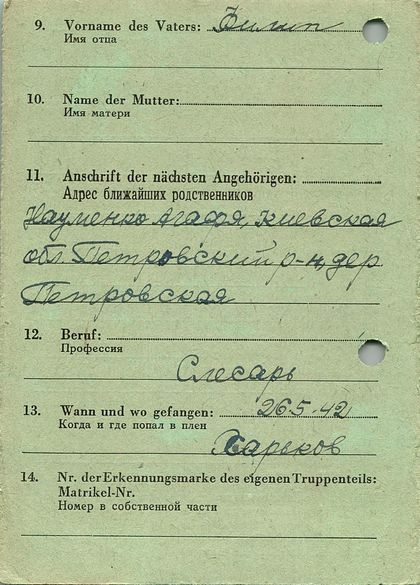 9. Vorname des Vaters: Филип
Имя отца
10. Name der Mutter:
Имя матери
11. Anschrift der nächsten Angehörigen:
Адрес ближайших родственников
Науменко Агафя, Киевская
обл. Петровский р-н, дер
Петровская
12. Beruf:
Профессия
Слесарь
13. Wann und wo gefangen: 26.5.42
Когда и где попал в плен
Харьков
14. Nr. der Erkennungsmarke des eigenen Truppenteils:
Matrikel-Nr.
Номер в собственной части